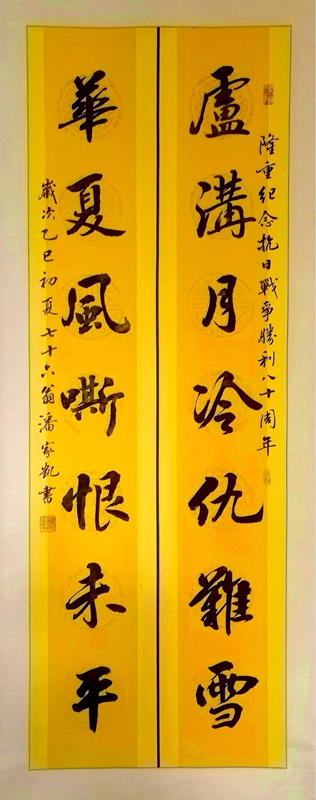 隆重纪念抗日戰爭勝利八十周年
盧溝月冷仇難雪
華夏風嘶恨未平
歲次乙巳初夏七十六翁潘家凱書